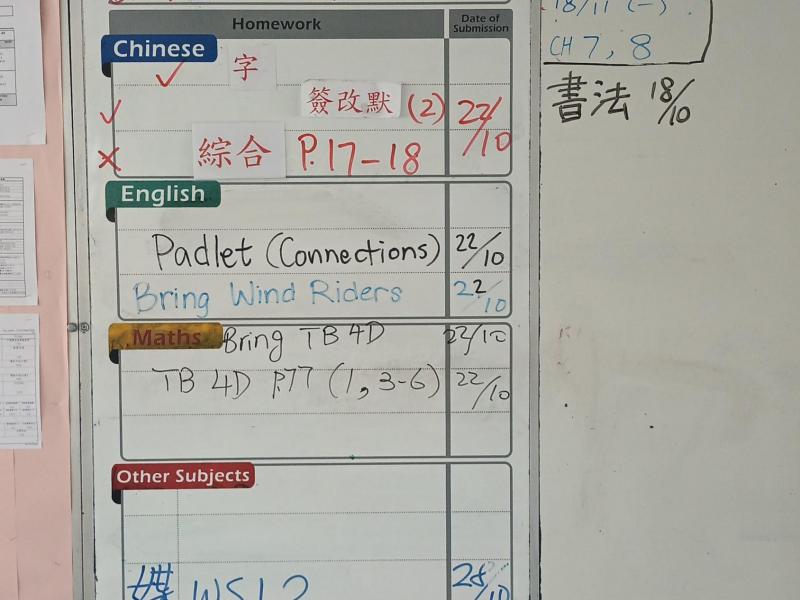 18/11 (一)
CH 7, 8
書法 18/10
Homework Date of Submission
Chinese
✓ 字
✓ 簽改默 (2) 22/10
✗ 綜合 P.17-18
English
Padlet (Connections) 22/10
Bring Wind Riders 22/10
Maths Bring TB 4D 22/10
TB 4D P.77 (1, 3-6) 22/10
Other Subjects
WS1,2